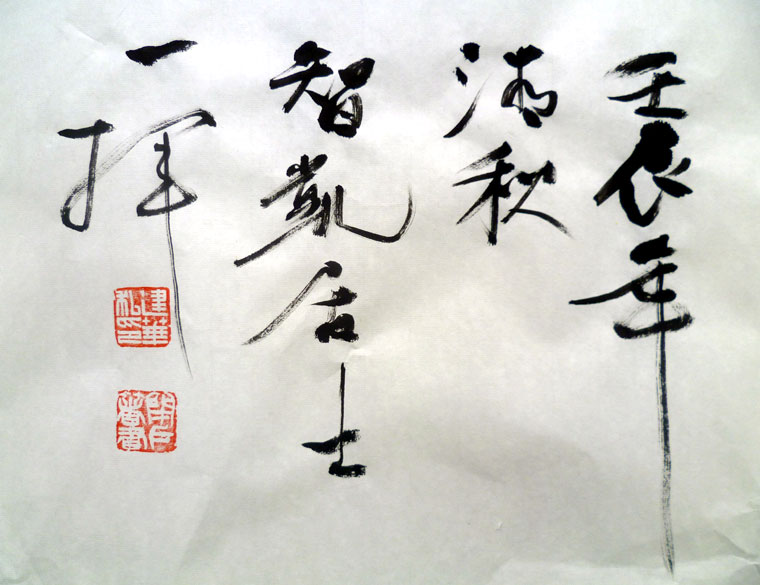 壬辰年
清秋
智凱居士
一揮
建華私印